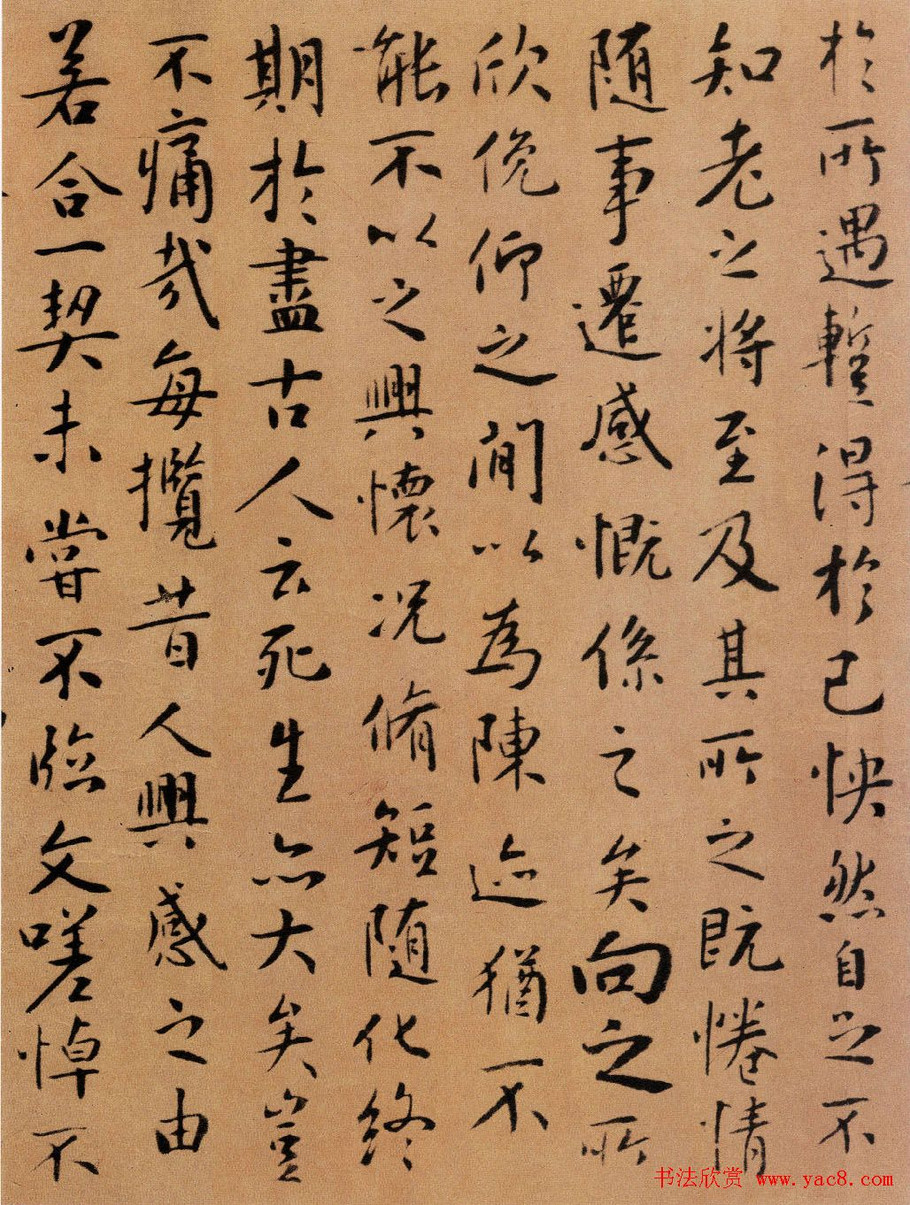 於所遇暫得於己怏然自足不
知老之將至及其所之既惓情
隨事遷感慨係之矣向之所
欣俛仰之閒以為陳迹猶不
能不以之興懷况脩短隨化終
期於盡古人云死生亦大矣豈
不痛哉每攬昔人興感之由
若合一契未嘗不臨文嗟悼不
书法欣赏 www.yac8.com